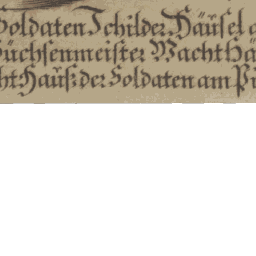 Soldaten Schilder Häusel
Büchsenmeister Wacht Hä
cht Hauß der Soldaten am Pu